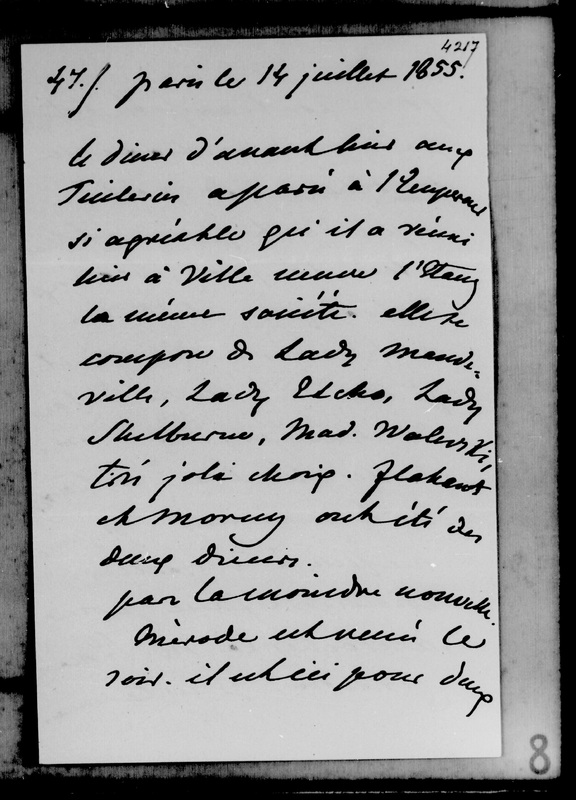 4217
47./. paris le 14 juillet 1855.
le diner d'avant hier aux
Tuileries a paru à l'Empereur
si agréable qu'il a réuni
hier à Ville neuve l'Etang
la même société. elle se
compose de Lady Mande-
ville, Lady Elcho, Lady
Shelburne, Mad. Walewski,
très joli choix. flahaut
et Morny ont été des
deux diners.
pas la moindre nouvelle.
Mérode est venu le
soir. il est ici pour deux
8